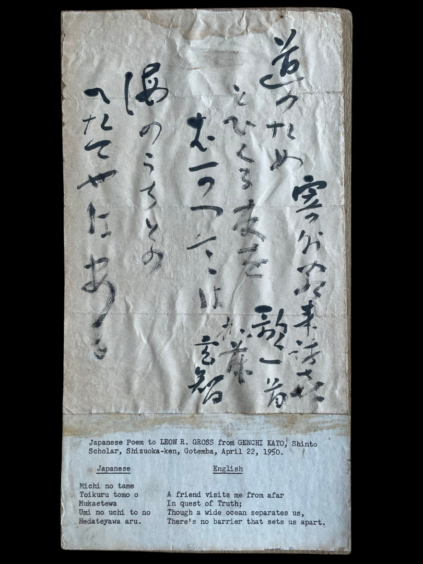 外客来訪
歌一首
道のため
とひくる友を
むかへては
海のうちとの
へたてやはある
加藤
玄智
Japanese Poem to LEON R. GROSS from GENCHI KATO, Shinto
Scholar, Shizuoka-ken, Gotemba, April 22, 1950.
Japanese
Michi no tame
Toikuru tomo o
Mukaetewa
Umi no uchi to no
Hedateyawa aru.
English
A friend visits me from afar
In quest of Truth;
Though a wide ocean separates us,
There's no barrier that sets us apart.